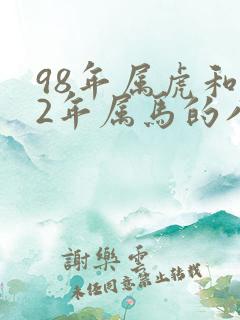 98年属虎和
2年属马的
謝樂雲
未经同意禁止转载